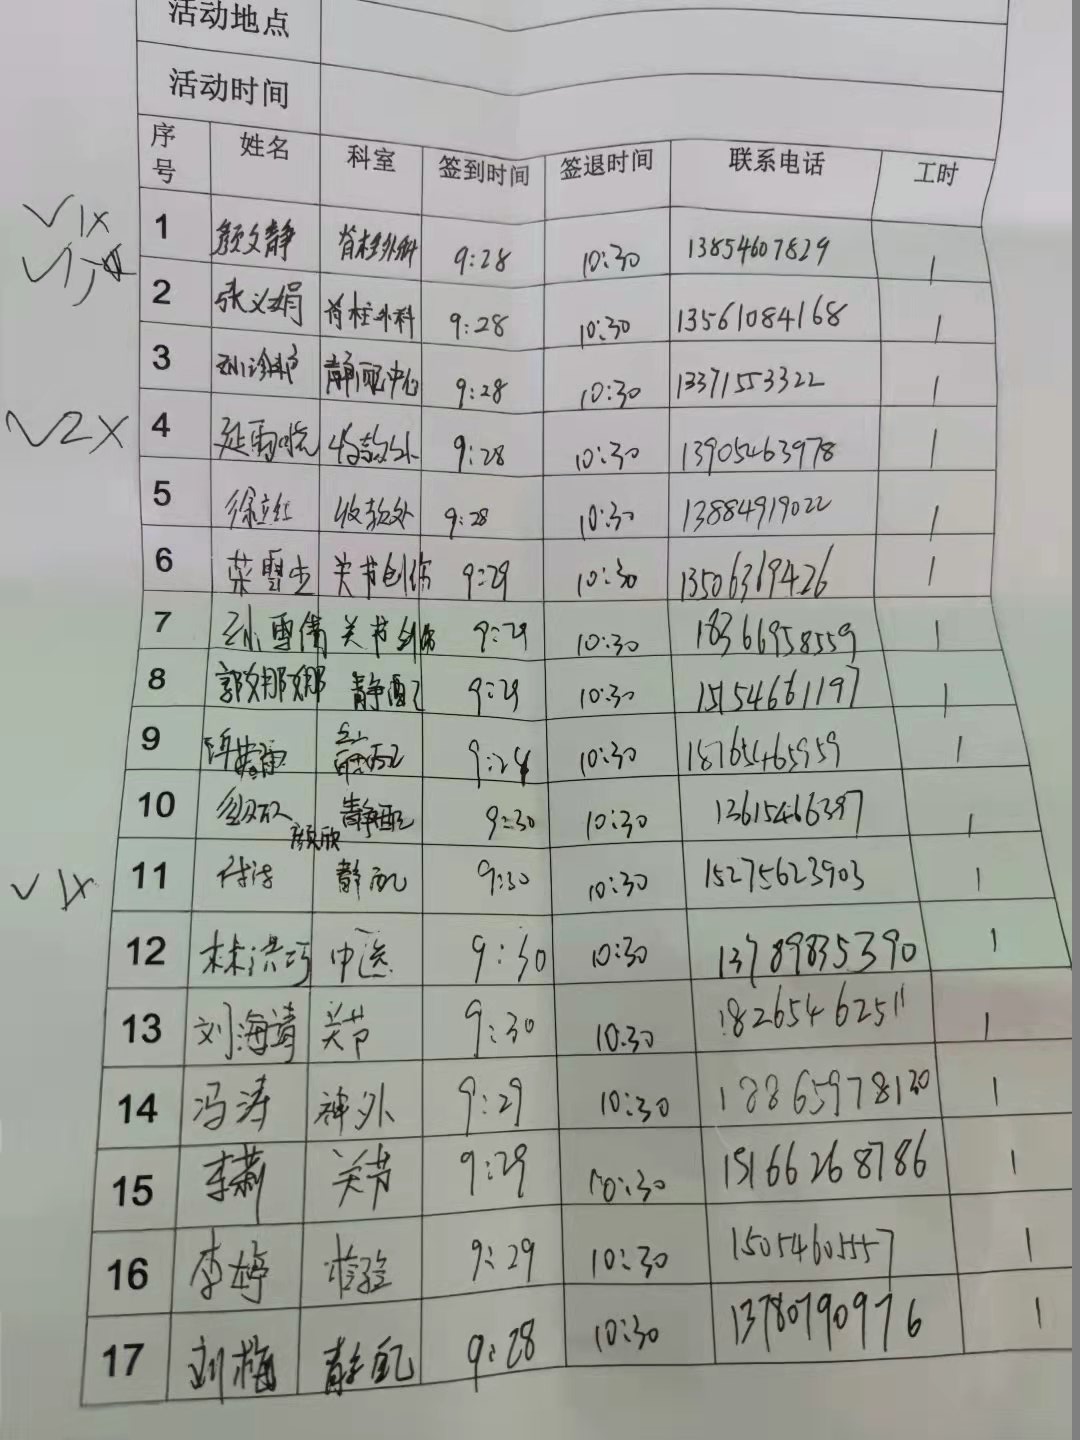 活动地点
活动时间
序号 姓名 科室 签到时间 签退时间 联系电话 工时
√1x 1 颜文静 脊柱外科 9:28 10:30 13854607829 1
2 张义娟 脊柱外科 9:28 10:30 13561084168 1
3 静配中心 9:28 10:30 13371553322 1
√2x 4 延雨晓 收款处 9:28 10:30 13905463978 1
5 徐立红 收款处 9:28 10:30 13884919022 1
6 荣雪 关节创伤 9:29 10:30 13506369426 1
7 孙雪倩 关节创伤 9:29 10:30 18366958559 1
8 郭娜娜 静配 9:29 10:30 15154661197 1
9 静配 10:30 18765465959 1
10 静配 9:30 10:30 13615466397 1
颜欣
√1x 11 静配 9:30 10:30 15275623903 1
12 林洪巧 中医 9:30 10:30 13789835390 1
13 刘海靖 关节 9:30 10:30 18265462511 1
14 冯涛 神外 9:29 10:30 18865978130 1
15 李莉 关节 9:29 10:30 15166268786 1
16 李婷 检验 9:29 10:30 15054605557 1
17 刘梅 静配 9:28 10:30 13780790976 1